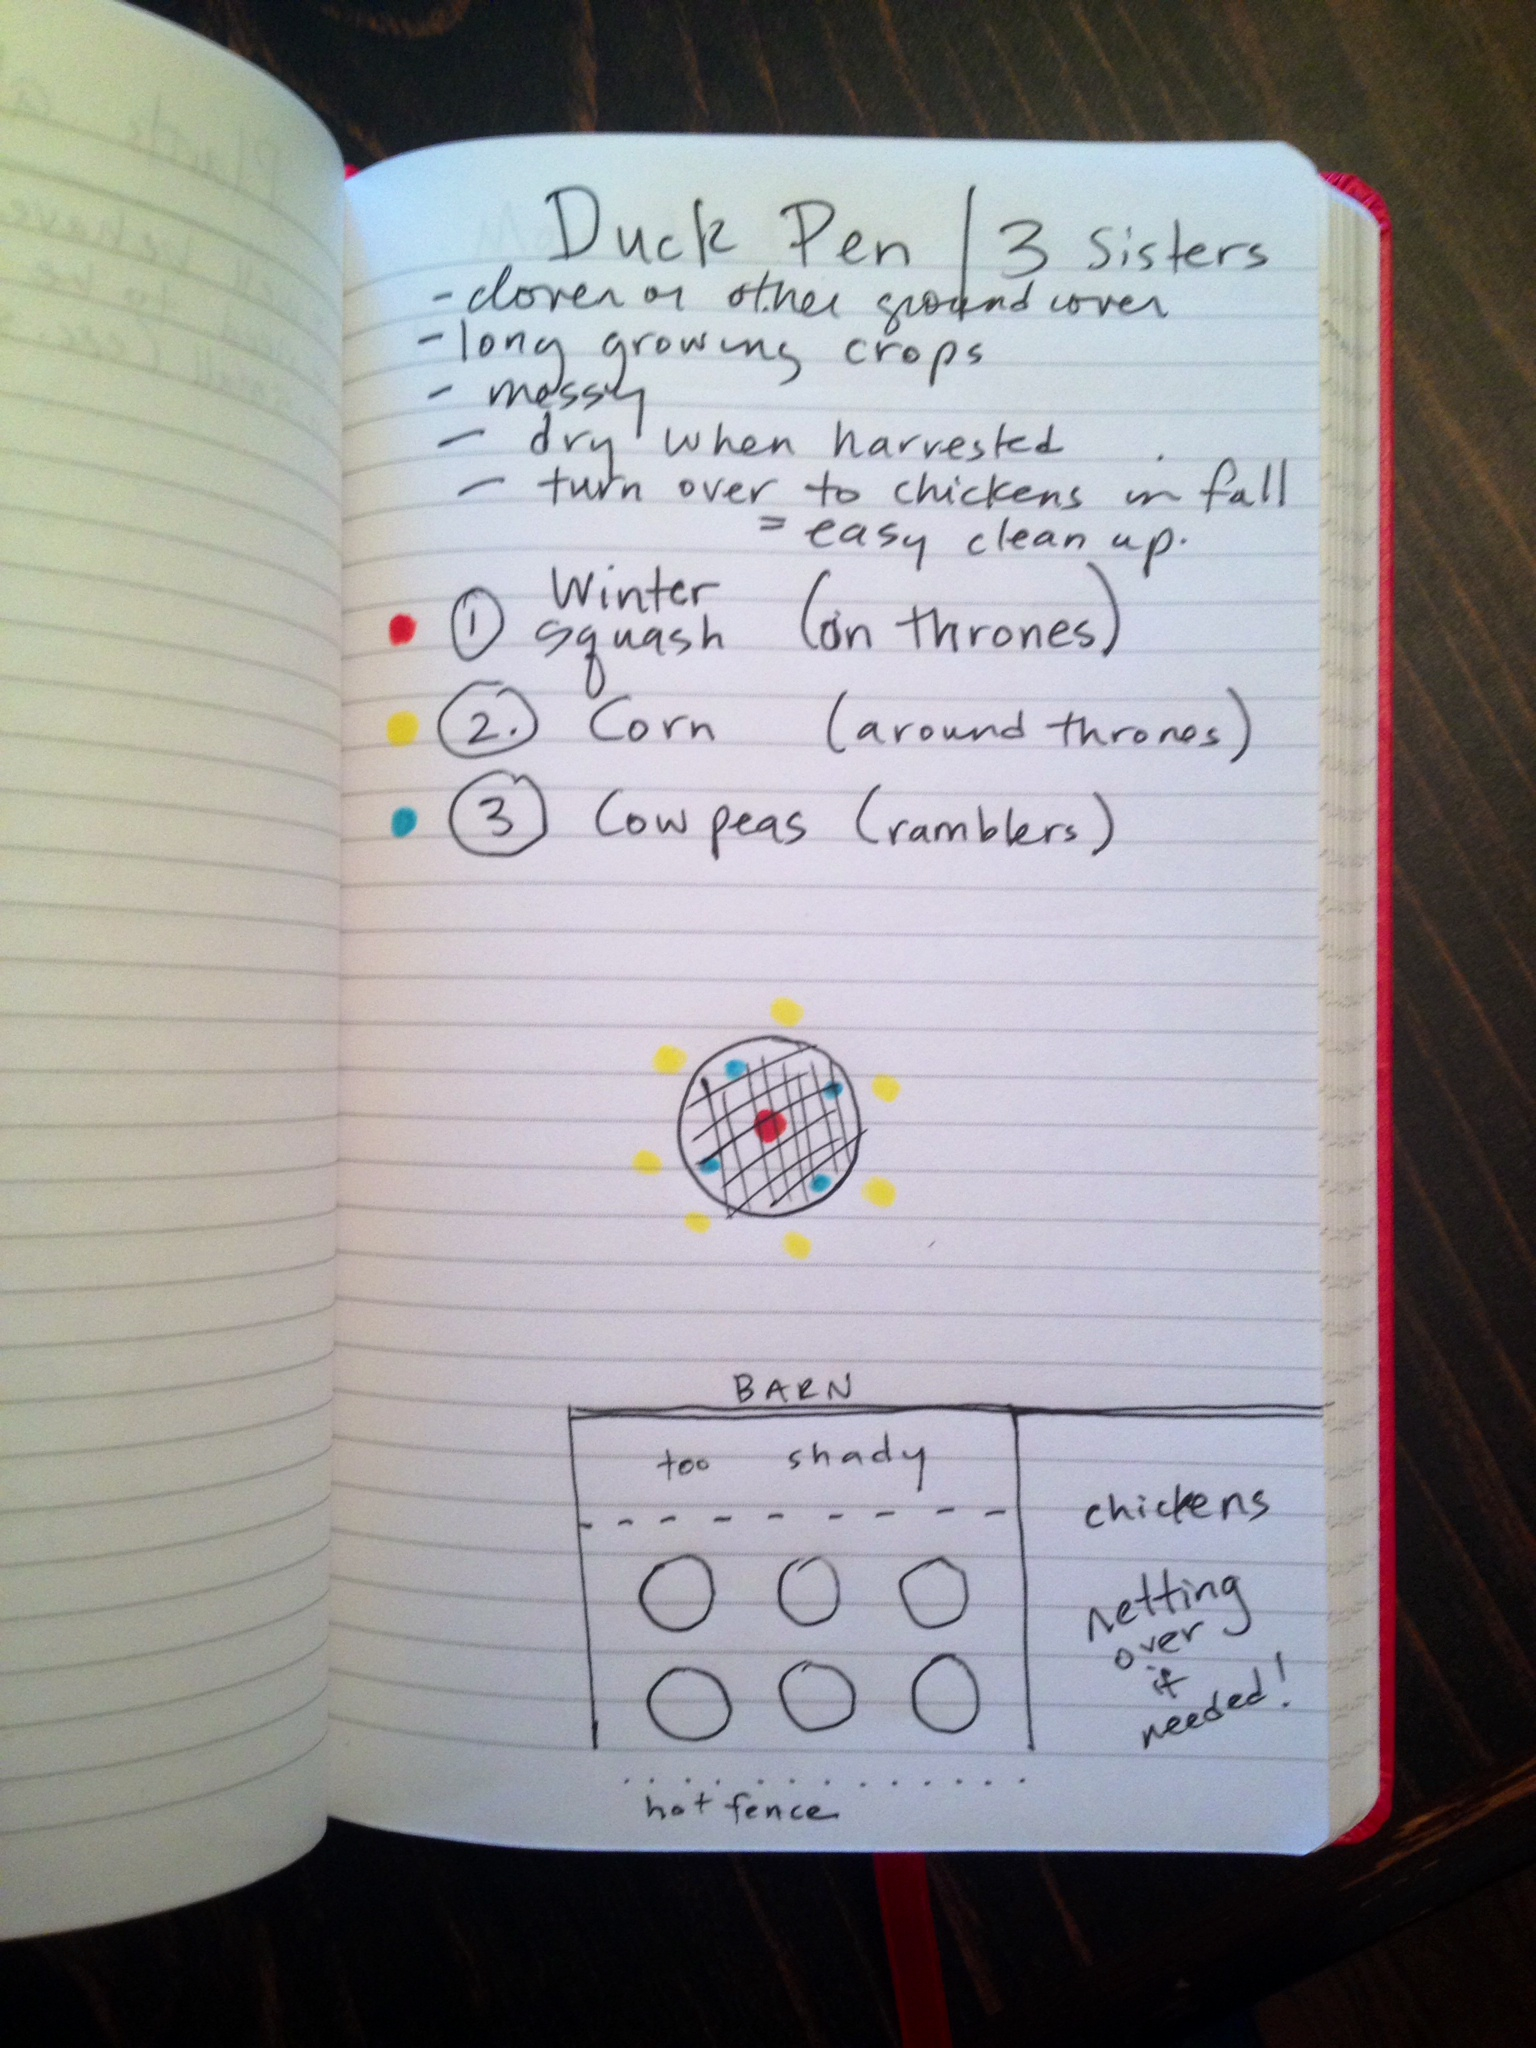 Duck Pen / 3 Sisters
- clover or other groundcover
- long growing crops
- messy
- dry when harvested
- turn over to chickens in fall
= easy clean up.
1 Winter squash (on thrones)
2. Corn (around thrones)
3 Cowpeas (ramblers)
BARN
too shady
chickens
netting
over
if
needed!
hot fence